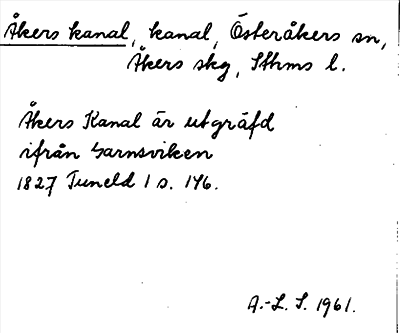 Åkers kanal, kanal, Österåkers sn,
Åkers skg, Sthms l.
Åkers Kanal är utgräfd
ifrån Garnsviken
1827 Tuneld 1 s. 146.
A.-L. S. 1961.